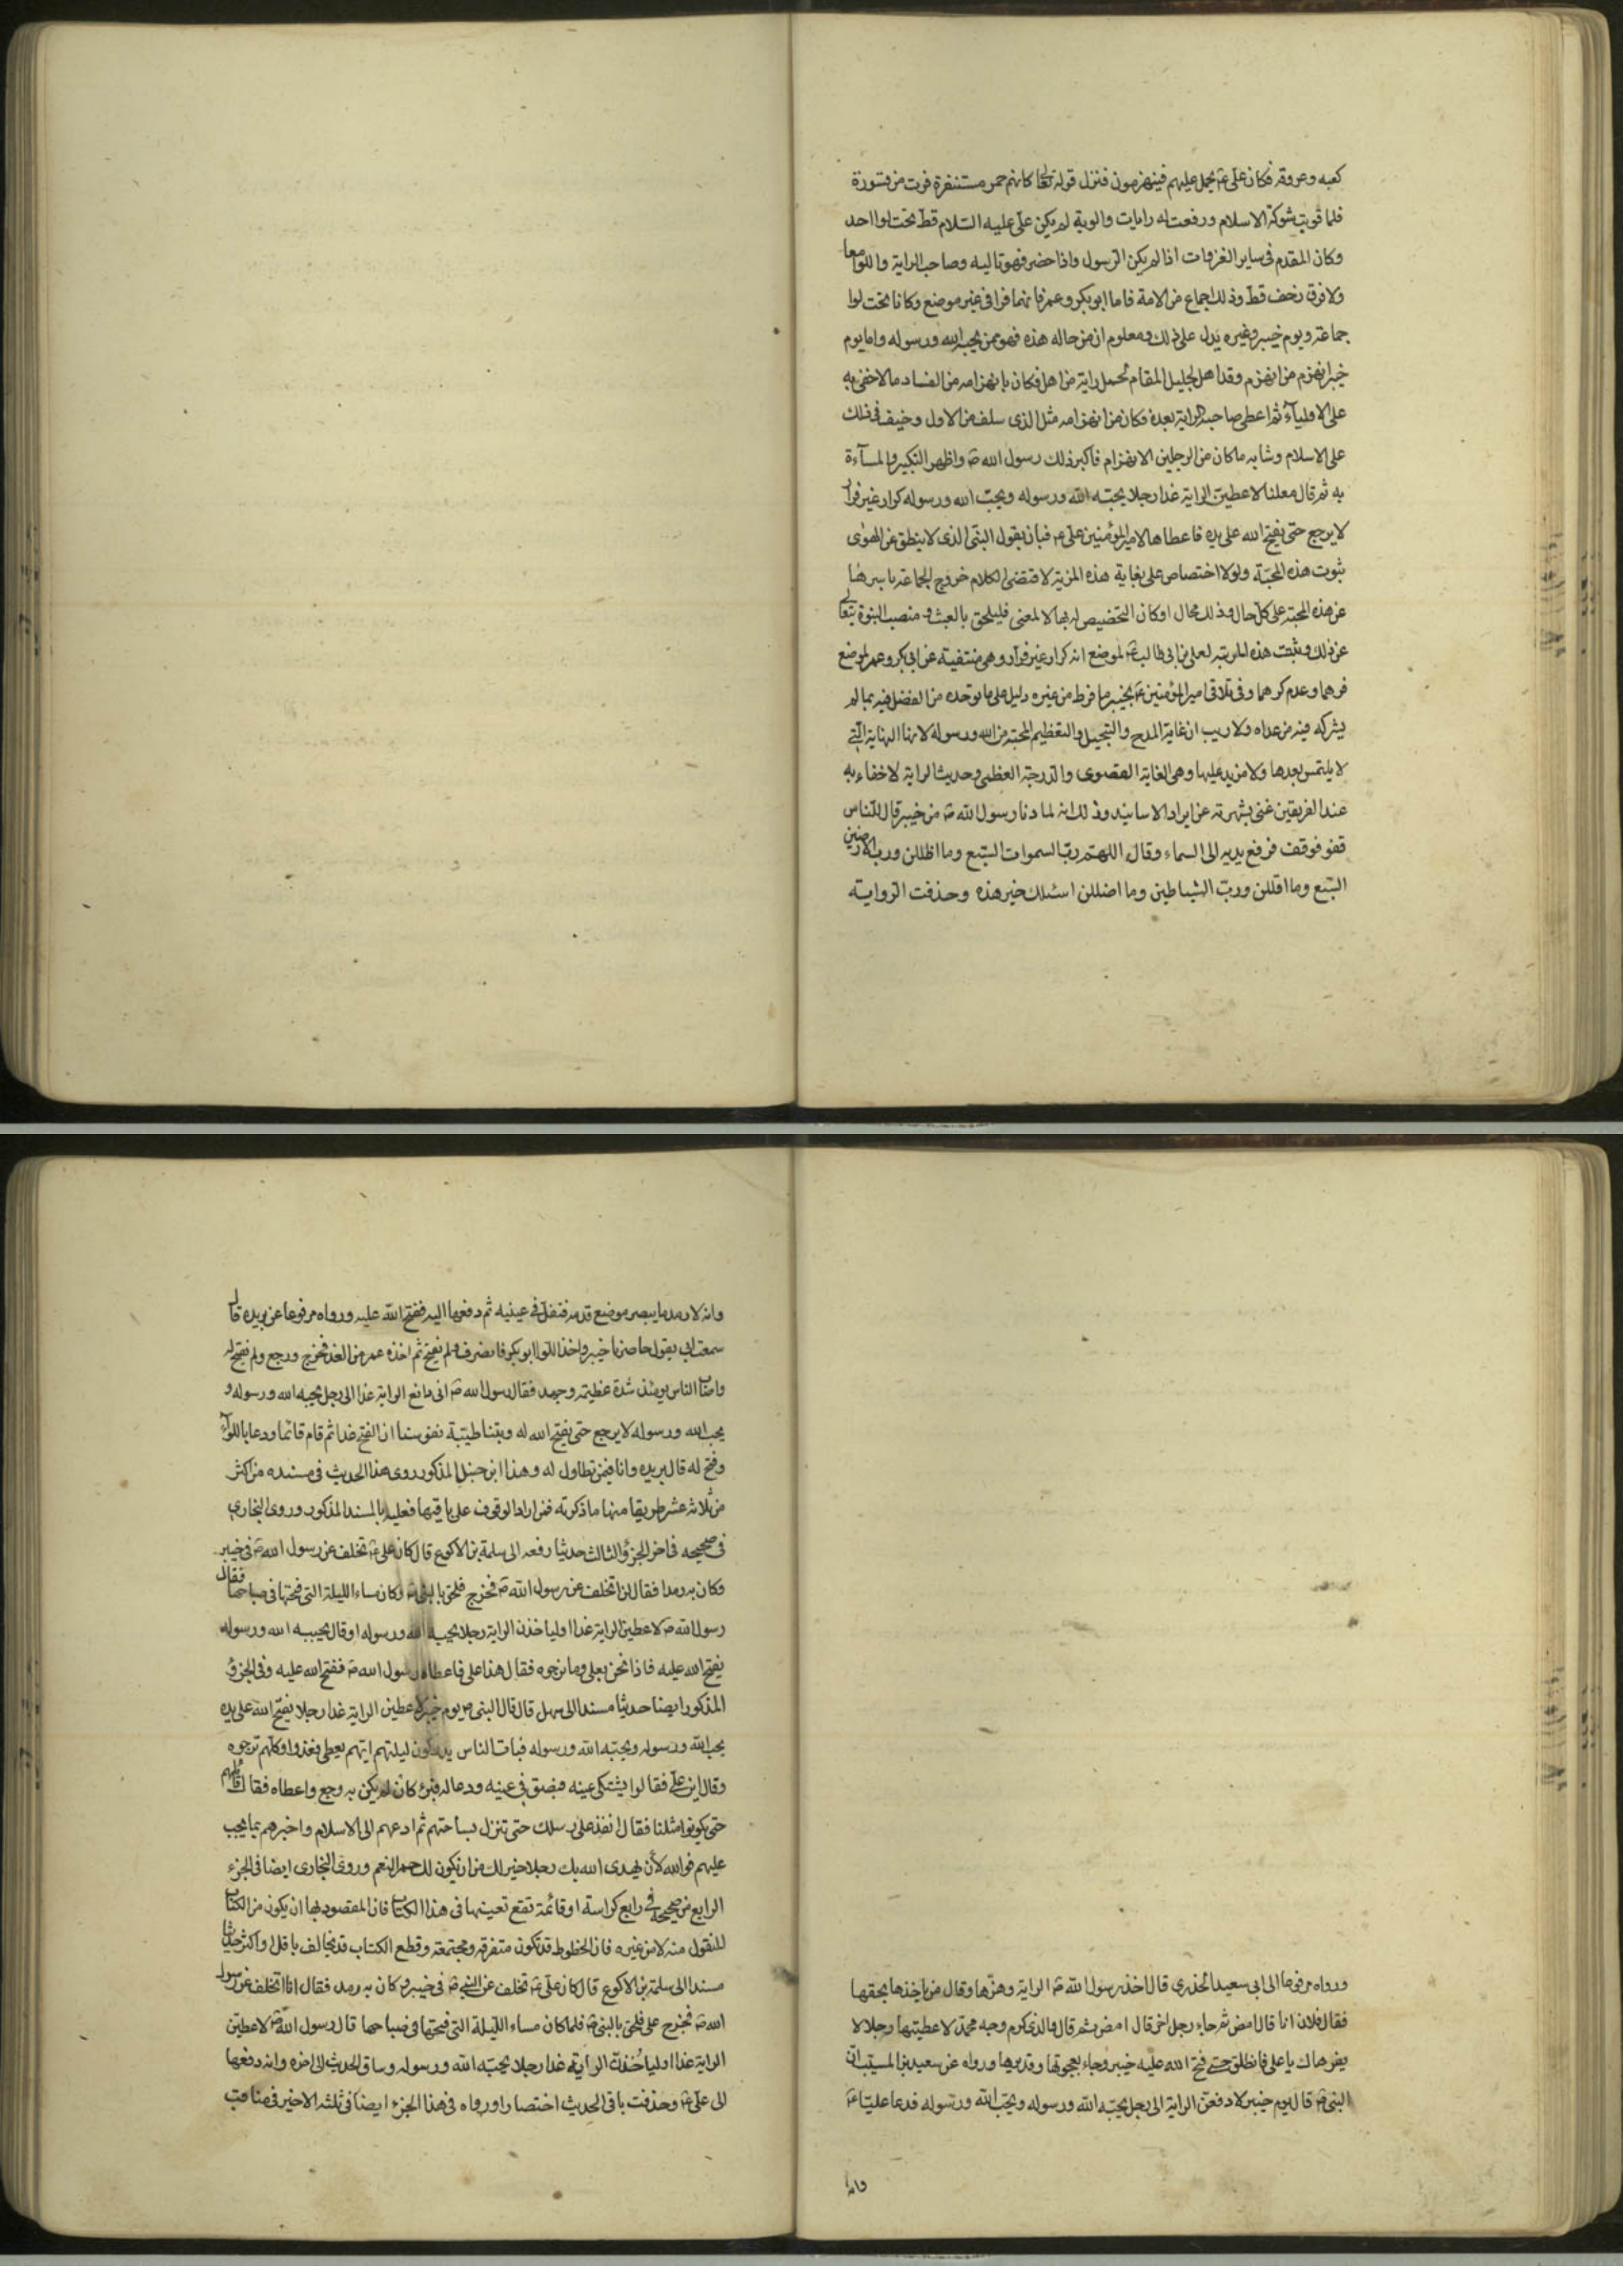 كعبه وعروقه فكان علي ع يحمل عليهم فينهزمون فنزل قوله تعا كانهم حمر مستنفرة فرت من قسورة
فلما قويت شوكة الاسلام ورفعت له رايات والوية لم يكن علي عليه السلام قط تحت لوا احد
وكان المقدم في ساير الغزوات اذا لم يكن الرسول واذا حضر فهو تاليه وصاحب الراية واللوا معا
ولا فرق زحف قط وذلك اجماع من الامة فاما ابو بكر وعمر فانهما فرا في غير موضع وكانا تحت لوا
جماعة ويوم خيبر وغيره يدل على ذلك ومعلوم ان من حاله هذه فهو ممن يحبه الله ورسوله واما يوم
خيبر انهزم من انهزم وقد اهل لجليل المقام بحمل راية من اهل فكان بانهزامه من الفساد ما لا خفى به
على الاولياء ثم اعطى صاحبه الراية بعده فكان من انهزامه مثل الذي سلف من الاول وخيف في ذلك
على الاسلام وشابه ما كان من الرجلين الانهزام فاكبر ذلك رسول الله ص واظهر النكير والمساءة
به ثم قال معلنا لاعطين الراية غدا رجلا يحبه الله ورسوله ويحب الله ورسوله كرار غير فرار
لا يرجع حتى يفتح الله على يده فاعطاها لامير المؤمنين علي ع فبان بقول النبي الذي لا ينطق عن الهوى
ثبوت هذه المحبة ولولا اختصاص علي بغاية هذه المزية لاقتضى الكلام خروج الجماعة باسرها
عن هذه المحبة على كل حال وذلك محال او كان التخصيص له بها لا لمعنى فليلحق بالعبث ومنصب النبوة يتعالى
عن ذلك وثبتت هذه المرتبة لعلي بن ابي طالب ع لموضع انه كرار غير فرار وهي منتفية عن ابي بكر وعمر لموضع
فرهما وعدم كرهما وفي تلاقي امير المؤمنين ع بخيبر ما فرط من غيره دليل على ما توحده من الفضل فيه بما لم
يشركه فيه من عداه ولا ريب ان غاية المدح والتبجيل والتعظيم المحبة من الله ورسوله لانها النهاية التي
لا يلتمس بعدها ولا مزيد عليها وهي الغاية القصوى والدرجة العظمى وحديث الراية لا خفاء به
عند الفريقين غني بشهرته عن ايراد الاسانيد وذلك انه لما دنا رسول الله ص من خيبر قال للناس
قفو فوقف فرفع يديه الى السماء وقال اللهم رب السموات السبع وما اظللن ورب الارضين
السبع وما اقللن ورب الشياطين وما اضللن اسئلك خير هذه وحذفت الرواية
ورواه مرفوعا الى ابي سعيد الخدري قال اخذ رسول الله ص الراية وهزها وقال من ياخذها بحقها
فقال فلان انا قال امض ثم جاء رجل اخر قال امض ثم قال والذي كرم وجه محمد لاعطيتها رجلا لا
يفر هاك يا علي فانطلق حتى فتح الله عليه خيبر وجاء بعجوتها وقديدها ورواه عن سعيد بن المسيب ان
النبي ص قال يوم خيبر لادفعن الراية الى رجل يحبه الله ورسوله ويحب الله ورسوله فدعا عليا ع
وانه
وانه لارمد ما يبصر موضع قدمه فتفل في عينيه ثم دفعها اليه ففتح الله عليه ورواه مرفوعا عن بريده قال
سمعت ابي يقول حاصرنا خيبر واخذ اللوا ابو بكر فانصرف ولم يفتح ثم اخذه عمر من الغد فخرج ورجع ولم يفتح له
واصاب الناس يومئذ شدة عظيمة وجهد فقال رسول الله ص اني دافع الراية غدا الى رجل يحبه الله ورسوله و
يحب الله ورسوله لا يرجع حتى يفتح الله له وبتنا طيبة نفوسنا ان الفتح غدا ثم قام قائما ودعا باللواء
وفتح له قال بريده وانا فيمن تطاول له وهذا ابن حنبل المذكور روى هذا الحديث في مسنده من اكثر
من ثلاثة عشر طريقا منها ما ذكرته فمن اراد الوقوف على باقيها فعليه بالمسند المذكور وروى البخاري
في صحيحه في اخر الجزؤ الثالث حديثا رفعه الى سلمة بن الاكوع قال كان علي ع تخلف عن رسول الله ص في خيبر
وكان به رمدا فقال لن اتخلف عن رسول الله ص فخرج فلحق بالنبي ص وكان مساء الليلة التي فتحها في صباحها فقال
رسول الله ص لاعطين الراية غدا او لياخذن الراية رجلا يحبه الله ورسوله او قال يحببه الله ورسوله
يفتح الله عليه فاذا نحن بعلي وما نرجوه فقال هذا علي فاعطاه رسول الله ص ففتح الله عليه وفي الجزؤ
المذكور ايضا حديثا مسندا الى سهل قال قال النبي ص يوم خيبر لاعطين الراية غدا رجلا يفتح الله على يده
يحب الله ورسوله ويحبه الله ورسوله فبات الناس يدوكون ليلتهم ايهم يعطى فغدوا وكلهم ترجوه
وقال اين علي فقالوا يشتكى عينه فبصق في عينه ودعا له فبرئ كان لم يكن به وجع واعطاه فقال اقاتلهم
حتى يكونوا مثلنا فقال انفذ على رسلك حتى تنزل بساحتهم ثم ادعهم الى الاسلام واخبرهم بما يجب
عليهم فوالله لأن يهدي الله بك رجلا خير لك من ان يكون لك حمر النعم وروى البخاري ايضا في الجزء
الرابع من صحيحه في رابع كراسة او قائمة تقع تعينها في هذا الكتاب فان المقصود بها ان يكون من الكتاب
المنقول منه لا من غيره فان الخطوط قد تكون متفرقة ومجتمعة وقطع الكتاب قد تخالف باقل او اكثر حديثا
مسندا الى سلمة بن الاكوع قال كان علي ع تخلف عن النبي ص في خيبر وكان به رمد فقال انا اتخلف عن رسول
الله ص فخرج علي فلحق بالنبي ص فلما كان مساء الليلة التي فتحها في صباحها قال رسول الله ص لاعطين
الراية غدا او لياخذن الراية غدا رجلا يحبه الله ورسوله وساق الحديث الى اخره وانه دفعها
الى علي ع وحذفت باقي الحديث اختصارا ورواه في هذا الجزء ايضا في ثلثه الاخير في مناقب